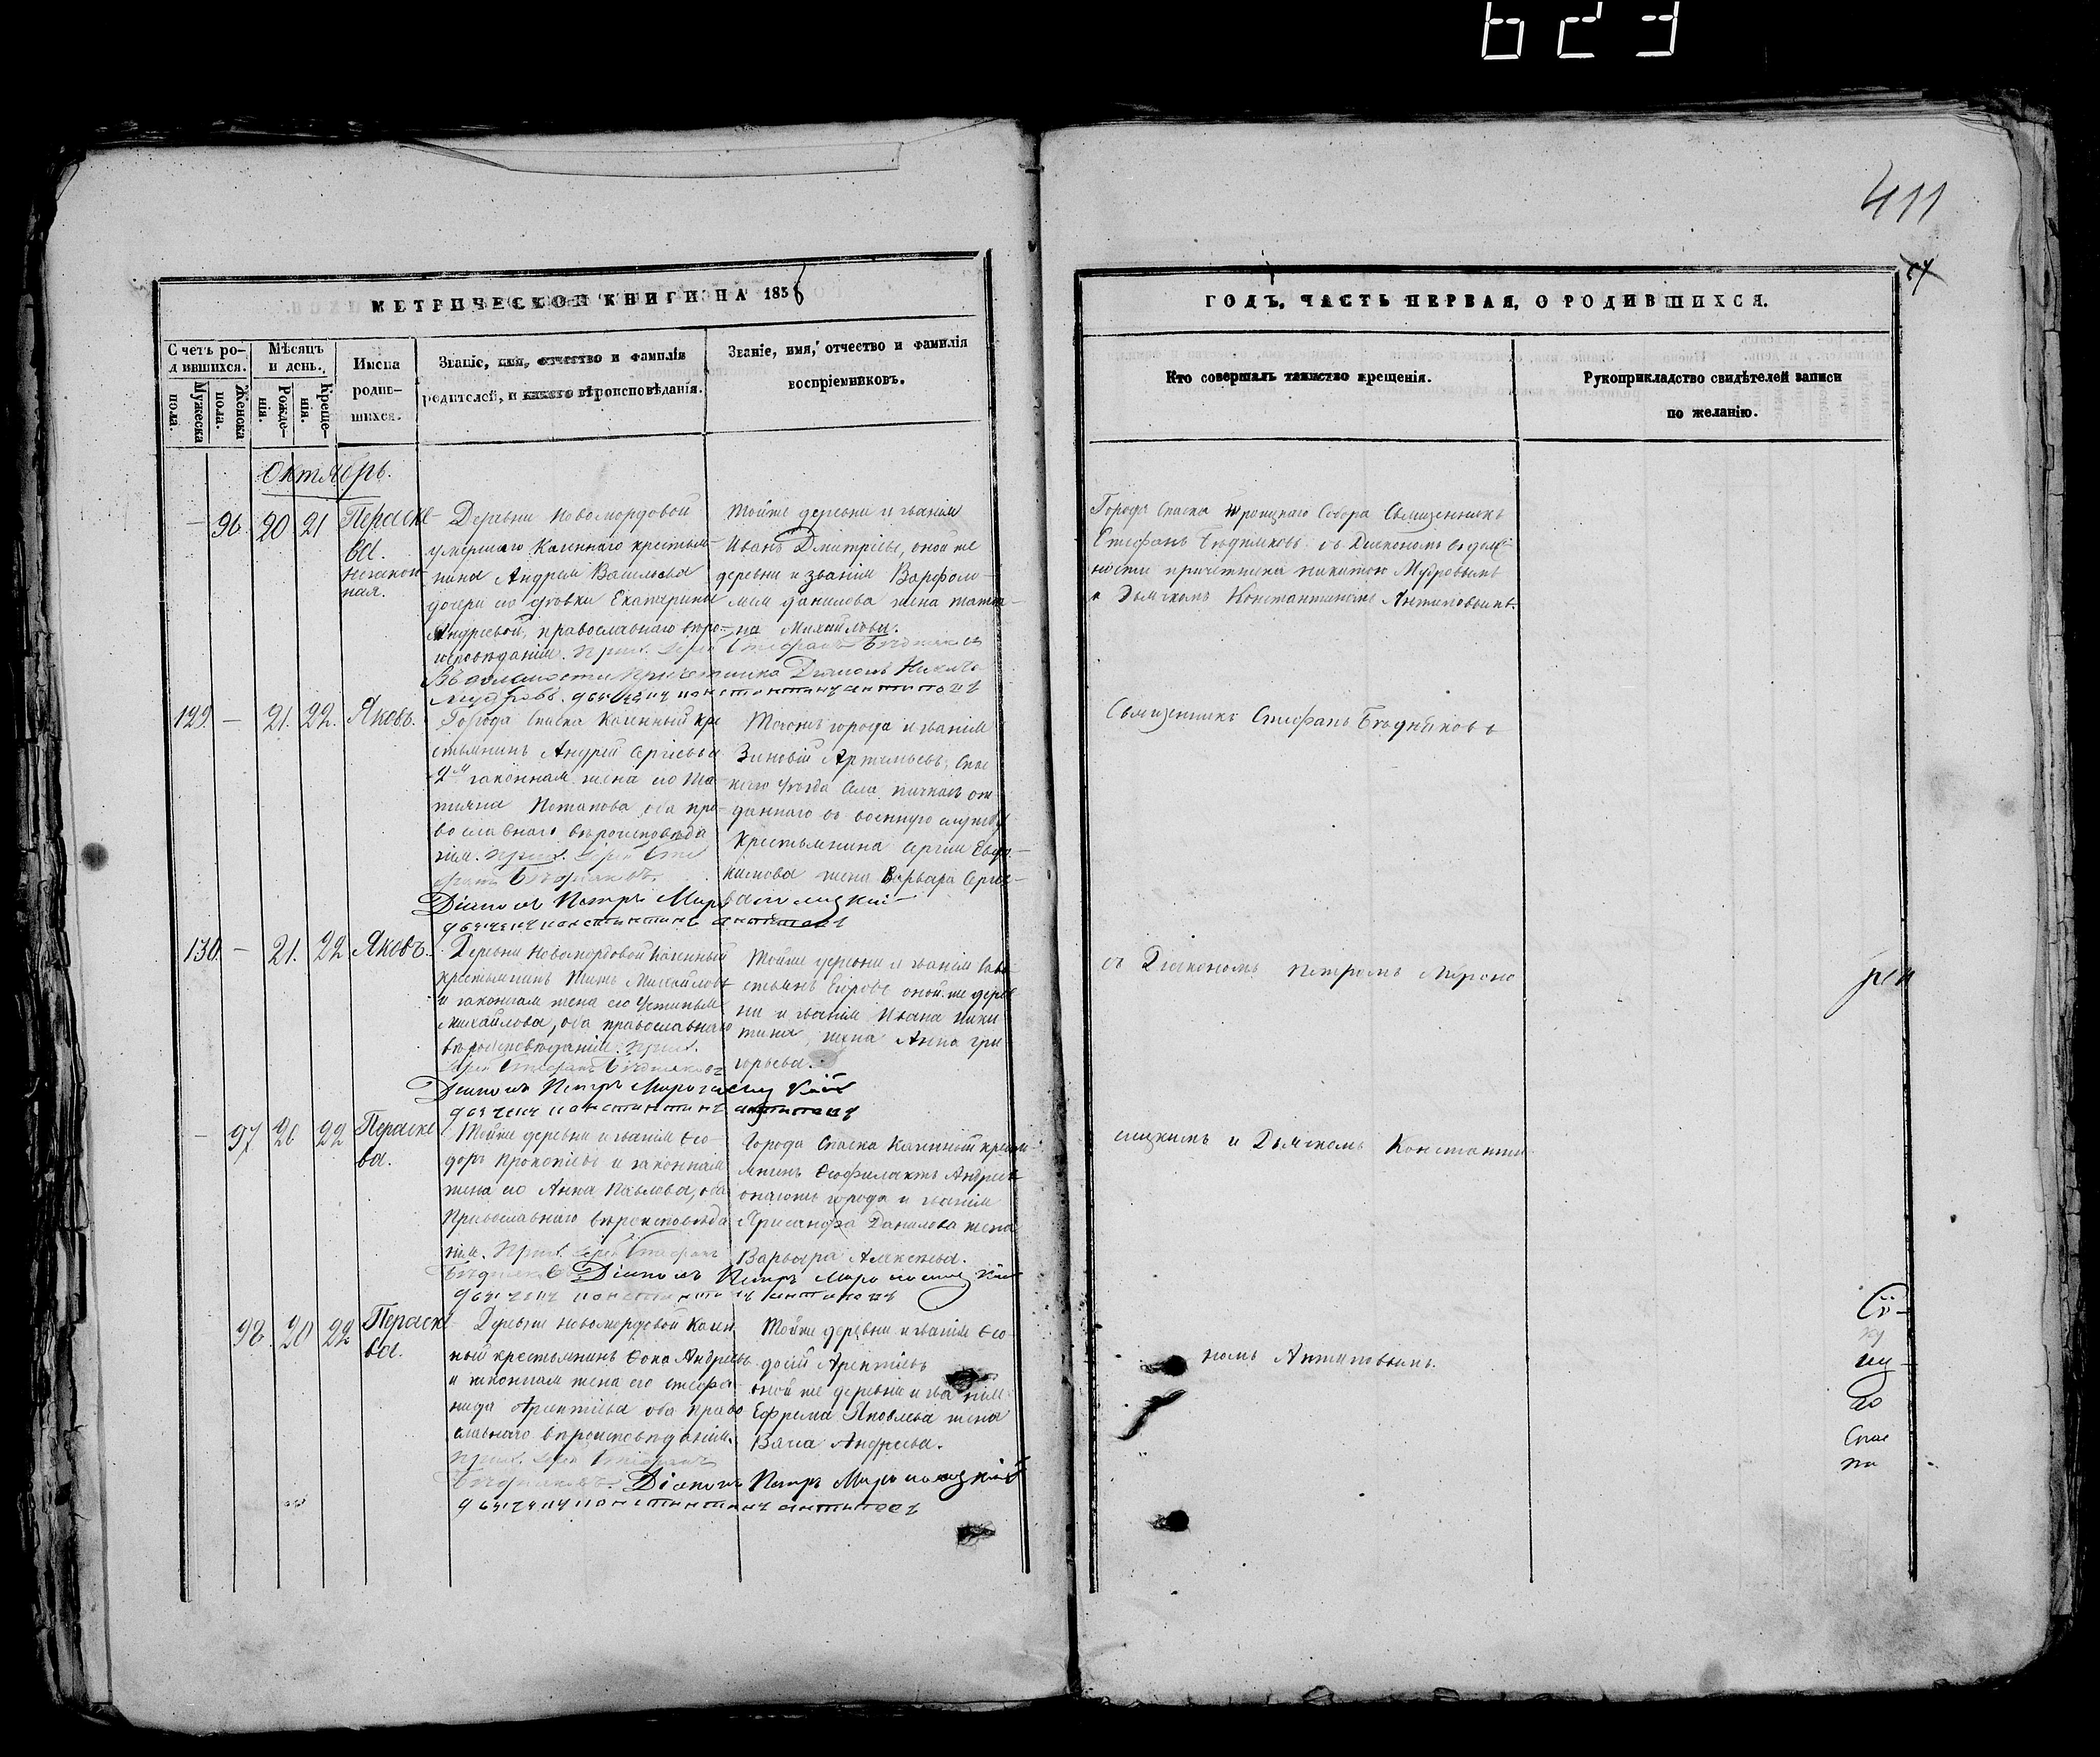 623
411
МЕТРИЧЕСКОЙ КНИГИ НА 1858
ГОДЪ, ЧАСТЬ ПЕРВАЯ, О РОДИВШИХСЯ.
Счетъ ро-
дившихся.
Мужеска пола.
Женска пола.
Мѣсяцъ
и день.
Рожде-
нія.
Креще-
нія.
Имена
родив-
шихся.
Званіе, имя, отчество и фамилія
родителей, и какого вѣроисповѣданія.
Званіе, имя, отчество и фамилія
воспріемниковъ.
Кто совершалъ таинство крещенія.
Рукоприкладство свидѣтелей записи
по желанію.
Октябрь.
— 96. 20 21 Параске-
ва.
незакон-
ная.
Деревни Новомордовой
умершаго Казеннаго крестья-
нина Андрея Васильева
дочери его дѣвки Екатерины
Андреевой, православнаго вѣро-
исповѣданія. Прих. Іерей Стефанъ Бѣдняковъ
Въ должности Причетника Діаконъ Никита
Мудровъ. дьячекъ константинъ антиповъ
тойже деревни и званія
Иванъ Дмитріевъ, оной же
деревни и званія Варфоло-
мея Данилова жена Матре-
на Михайлова.
Города Спаска Троицкаго Собора Священникъ
Стефанъ Бѣдняковъ съ Діакономъ въ долж-
ности причетника Никитою Мудровымъ
и Дьячкомъ Константиномъ Антиповымъ.
129. — 21. 22. Яковъ.
Города Спаска Казенный кре
стьянинъ Андрей Сергіевъ и
законная жена его Та-
тьяна Потапова, оба пра-
вославнаго вѣроисповѣда
нія. Прих. Іерей Сте
фанъ Бѣдняковъ.
Діаконъ Петръ Мироносицкій
дьячекъ константинъ антиповъ
Тогожъ города и званія
Зиновій Артемьевъ, Спас
каго уѣзда Села от
даннаго въ военную службу
крестьянина Сергія Евдо-
кимова жена Варвара Серге-
Священникъ Стефанъ Бѣдняковъ
130 — 21. 22. Яковъ.
Деревни Новомордовой Казенный
крестьянинъ Титъ Михайловъ
и законная жена его Устинья
Михайлова, оба православнаго
вѣроисповѣданія. Прих.
Іерей Стефанъ Бѣдняковъ
Діаконъ Петръ Мироносицкій
дьячекъ константинъ антиповъ
Тойже деревни и званія Сава
стьянъ оной же дерев
ни и званія Ивана Ники
тина, жена Анна Гри
горьева.
съ Діакономъ Петромъ Мироно
— 97 20 22 Параске
ва.
Тойже деревни и званія Ѳео-
доръ Прокопіевъ и законная
жена его Анна Павлова, оба
Православнаго вѣроисповѣда
нія. Прих. Іерей Стефанъ
Бѣдняковъ Діаконъ Петръ Мироносицкій
дьячекъ константинъ антиповъ
Города Спаска Казенный кресть
янинъ Ѳеофилактъ Андреевъ
онагоже города и званія
Данилова жена
Варвара Алексѣева.
сицкимъ и Дьячкомъ Константи
98. 20 22 Параске
ва.
Деревни Новомордовой Казен
ный крестьянинъ Ѳока Андреевъ
и законная жена его Стефа-
нида Арефтіева оба право
славнаго вѣроисповѣданія.
Прих. Іерей Стефанъ
Бѣдняковъ. Діаконъ Петръ Мироносицкій
дьячекъ константинъ антиповъ
Тойже деревни и званія Ѳео-
досій Арефтіевъ
оной же деревни и званія
Ефрема Яковлева жена
Васса Андреева.
номъ Антиповымъ.